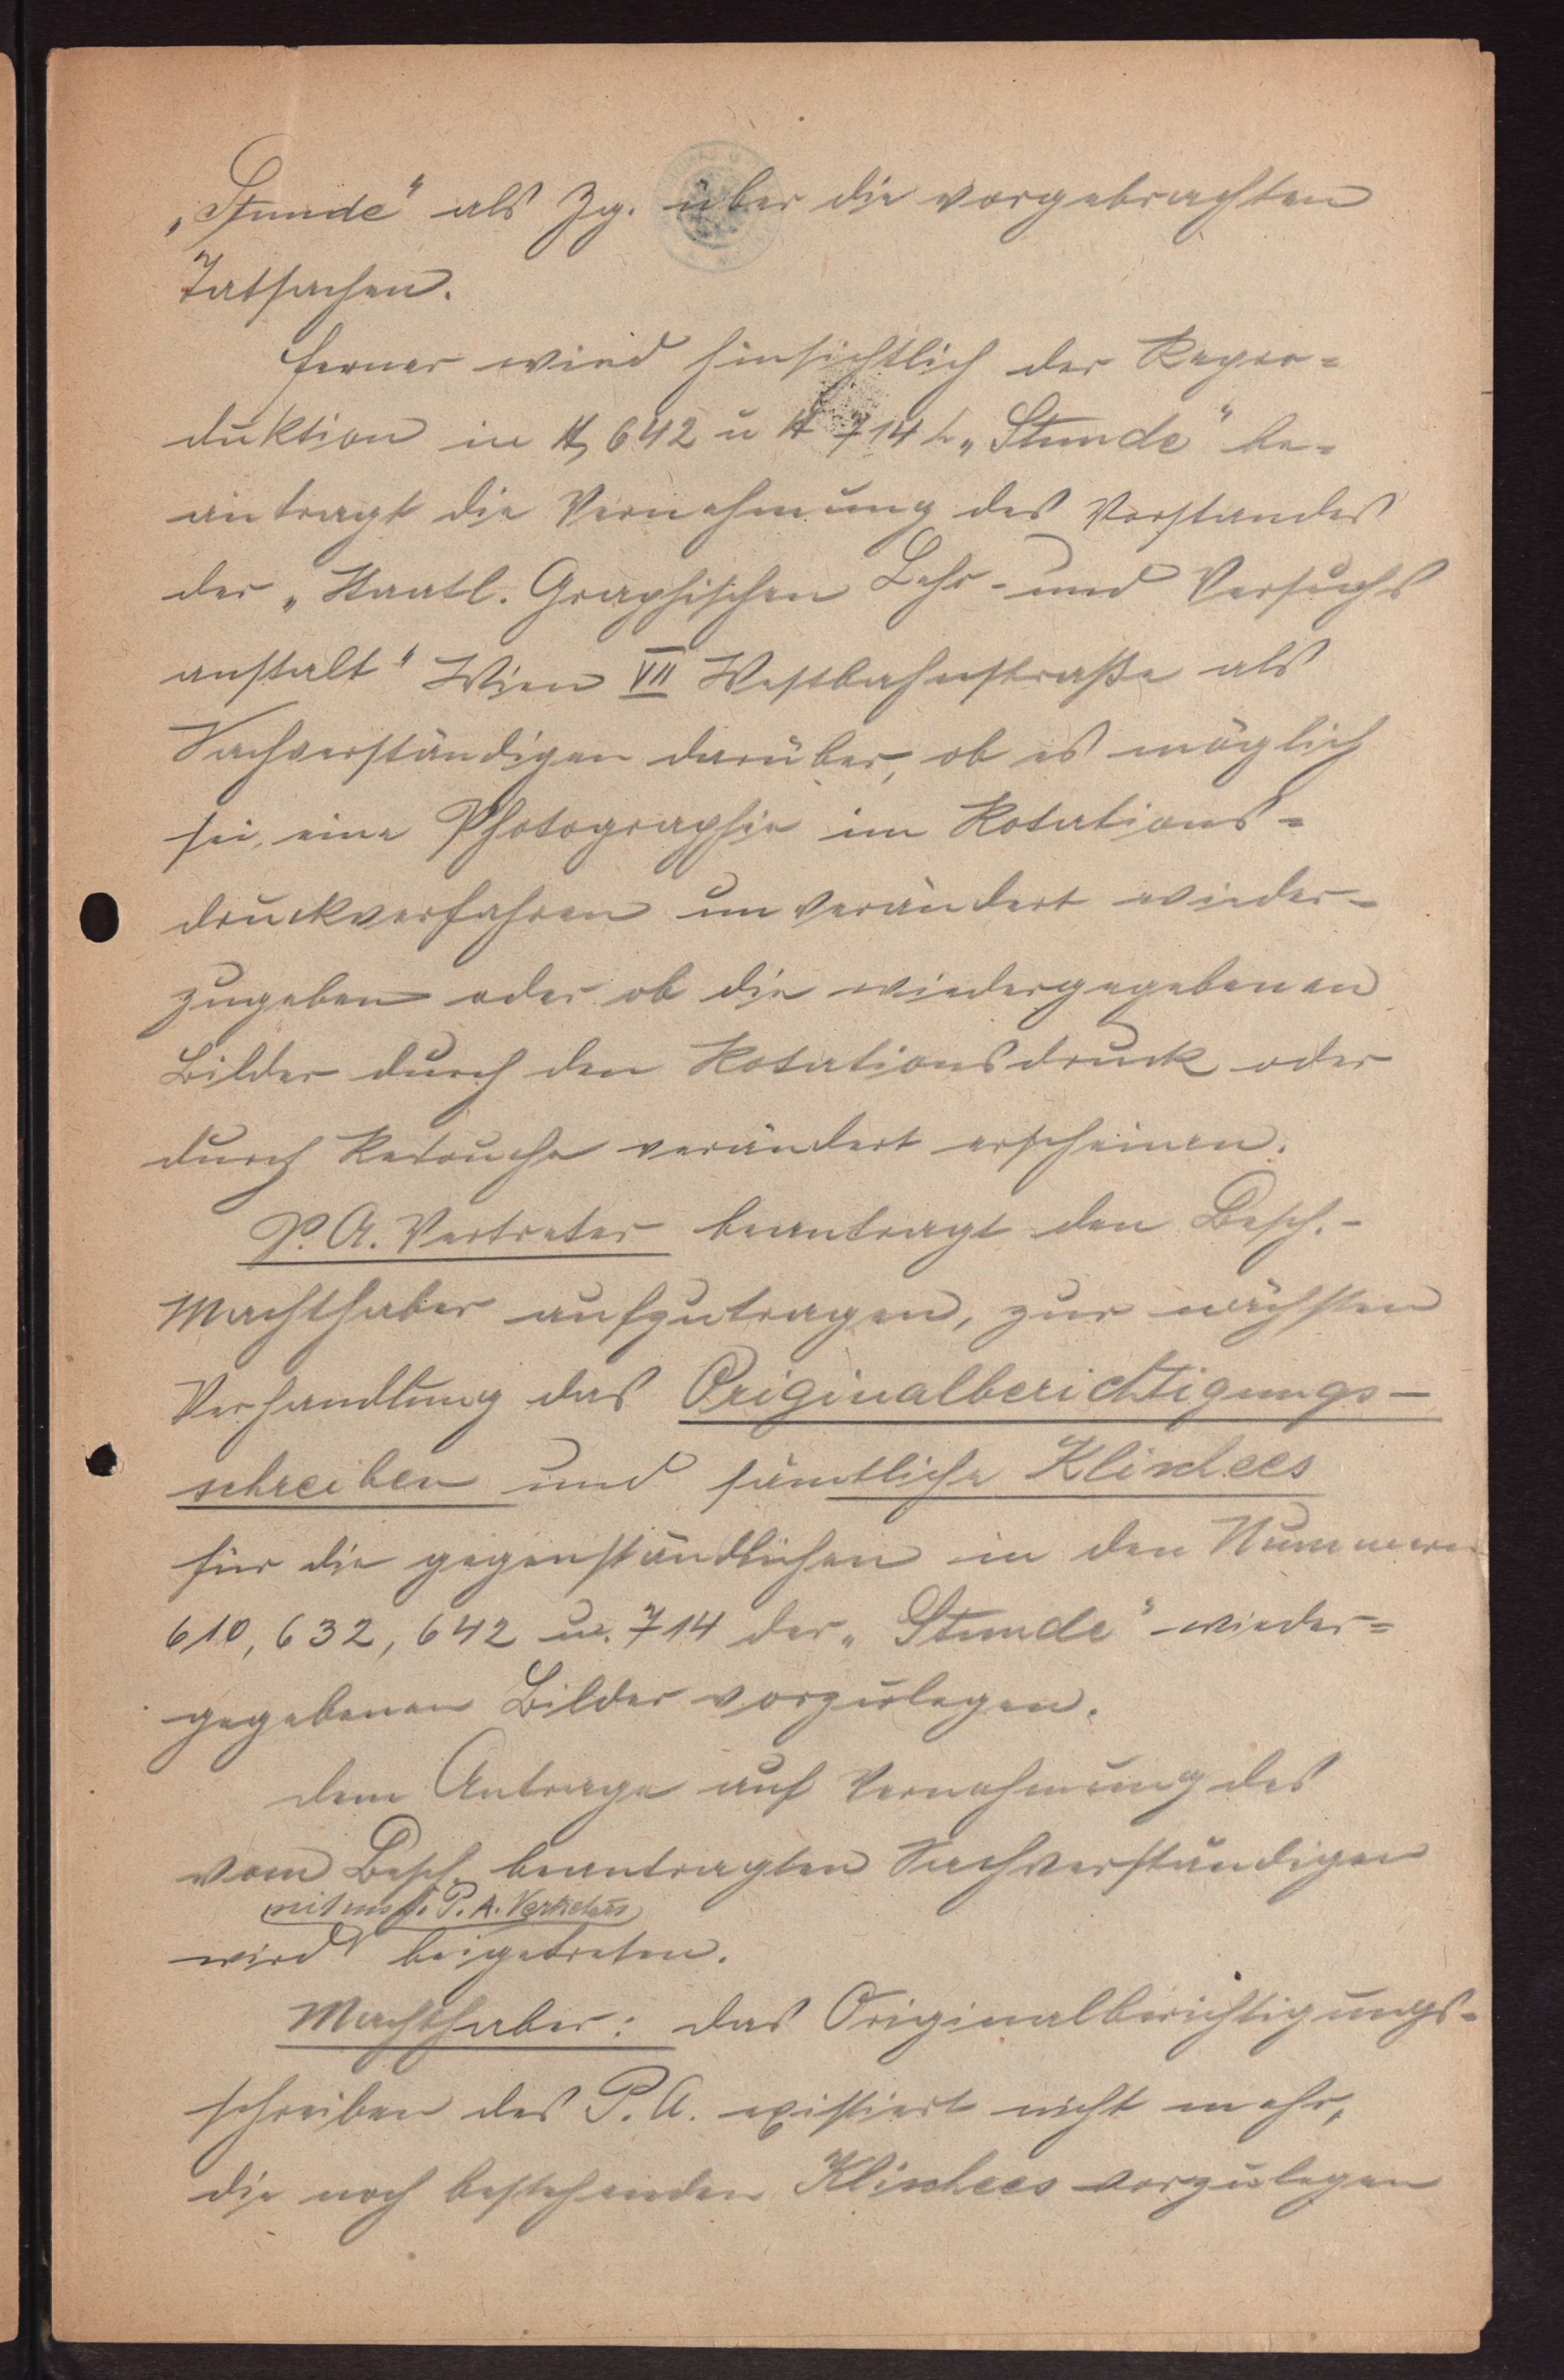 „Stunde“ als Zg. über die vorgebrachten
Tatsachen.
Ferner wird hinsichtlich der Repro=
duktion in N 642 u N 714 d. „Stunde“ be=
antragt die Vernehmung des Vorstandes
der „Staatl. Graphischen Lehr- und Versuchs
anstalt“ Wien VII Westbahnstraße als
Sachverständigen darüber, ob es möglich
sei, eine Photographie im Rotations=
druckverfahren unverändert wieder=
zugeben oder ob die wiedergegebenen
Bilder durch den Rotationsdruck oder
durch Retouche verändert erscheinen.
P. A. Vertreter beantragt den Besch.-
Machthaber aufzutragen, zur nächsten
Verhandlung das Originalberichtigungs-
schreiben und sämtliche Klischees
für die gegenständlichen in den Nummern
610, 632, 642 u. 714 der „Stunde“ wieder=
gegebenen Bilder vorzulegen.
Dem Antrage auf Vernehmung des
vom Besch. beantragten Sachverständigen
P. A. Vertreters
wird beigetreten.
Machthaber: das Originalberichtigungs=
schreiben des P. A. existiert nicht mehr,
die noch bestehenden Klischees vorzulegen